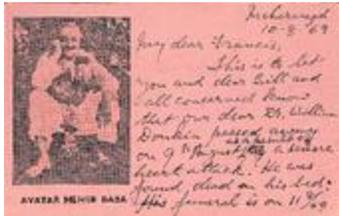 Meherazad
10-8-69
My dear Francis,
This is to let
you and dear Bill and
all concerned know
that our dear Dr. William
Donkin passed away
on 9th August, of a severe
heart attack. He was
found dead on his bed.
His funeral is on 11/8/69.
AVATAR MEHER BABA